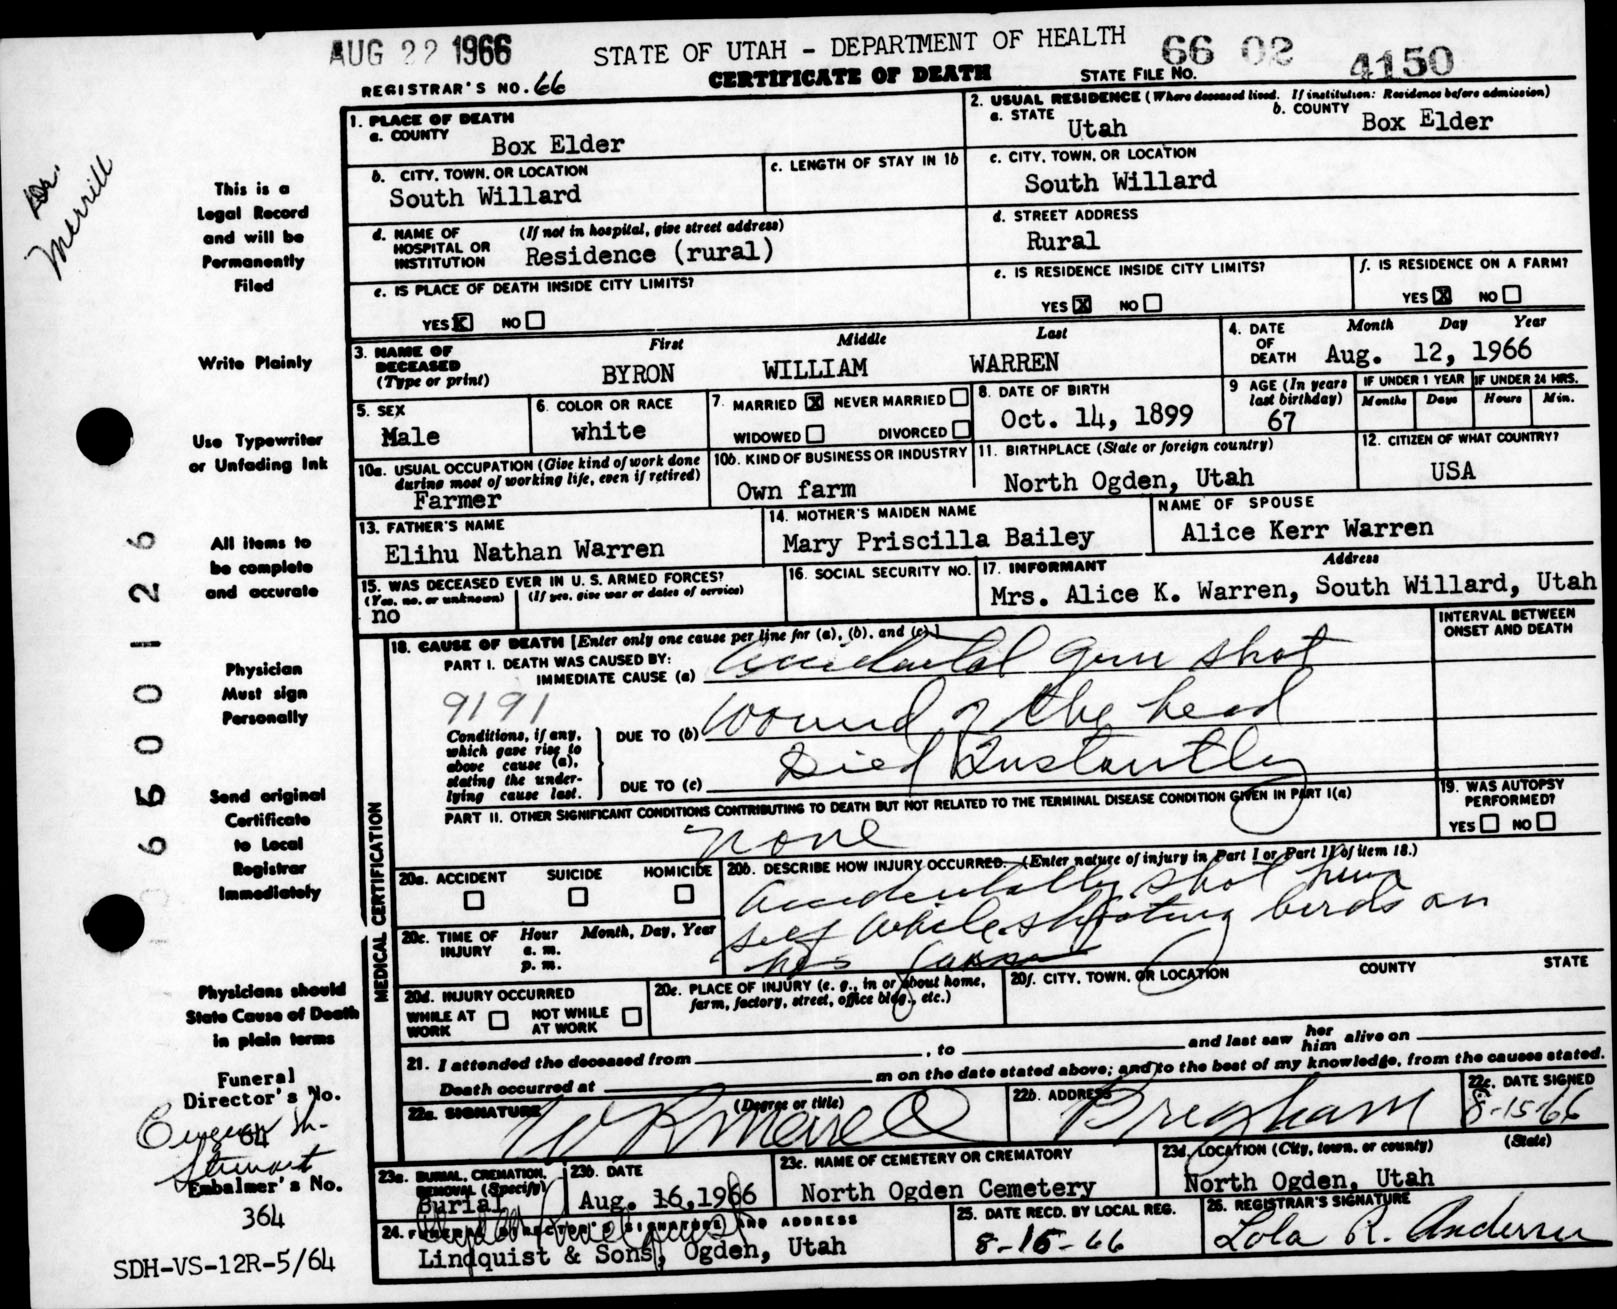 AUG 22 1966
STATE OF UTAH - DEPARTMENT OF HEALTH
66 02 4150
REGISTRAR'S NO. 66
CERTIFICATE OF DEATH
STATE FILE NO.
Dr. Merrill
This is a
Legal Record
and will be
Permanently
Filed
Write Plainly
Use Typewriter
or Unfading Ink
All items to
be complete
and accurate
Physician
Must sign
Personally
Send original
Certificate
to Local
Registrar
Immediately
Physicians should
State Cause of Death
in plain terms
Funeral
Director's No.
64
Stewart
Embalmer's No.
364
SDH-VS-12R-5/64
6 6 5 0 0 1 2 6
1. PLACE OF DEATH
a. COUNTY
Box Elder
2. USUAL RESIDENCE (Where deceased lived. If institution: Residence before admission)
a. STATE
Utah
b. COUNTY
Box Elder
b. CITY, TOWN, OR LOCATION
South Willard
c. LENGTH OF STAY IN 1b
c. CITY, TOWN, OR LOCATION
South Willard
d. NAME OF HOSPITAL OR INSTITUTION
(If not in hospital, give street address)
Residence (rural)
d. STREET ADDRESS
Rural
e. IS PLACE OF DEATH INSIDE CITY LIMITS?
YES X NO
e. IS RESIDENCE INSIDE CITY LIMITS?
YES X NO
f. IS RESIDENCE ON A FARM?
YES X NO
3. NAME OF DECEASED (Type or print)
First Middle Last
BYRON WILLIAM WARREN
4. DATE OF DEATH
Month Day Year
Aug. 12, 1966
5. SEX
Male
6. COLOR OR RACE
white
7. MARRIED X NEVER MARRIED
WIDOWED DIVORCED
8. DATE OF BIRTH
Oct. 14, 1899
9 AGE (In years last birthday)
67
IF UNDER 1 YEAR
Months Days
IF UNDER 24 HRS.
Hours Min.
10a. USUAL OCCUPATION (Give kind of work done during most of working life, even if retired)
Farmer
10b. KIND OF BUSINESS OR INDUSTRY
Own farm
11. BIRTHPLACE (State or foreign country)
North Ogden, Utah
12. CITIZEN OF WHAT COUNTRY?
USA
13. FATHER'S NAME
Elihu Nathan Warren
14. MOTHER'S MAIDEN NAME
Mary Priscilla Bailey
NAME OF SPOUSE
Alice Kerr Warren
15. WAS DECEASED EVER IN U. S. ARMED FORCES?
(Yes, no, or unknown) (If yes, give war or dates of service)
no
16. SOCIAL SECURITY NO.
17. INFORMANT Address
Mrs. Alice K. Warren, South Willard, Utah
MEDICAL CERTIFICATION
18. CAUSE OF DEATH [Enter only one cause per line for (a), (b), and (c).]
INTERVAL BETWEEN ONSET AND DEATH
PART I. DEATH WAS CAUSED BY:
IMMEDIATE CAUSE (a) Accidental gun shot
9191
Conditions, if any, which gave rise to above cause (a), stating the underlying cause last.
DUE TO (b) wound of the head
DUE TO (c) Died Instantly
PART II. OTHER SIGNIFICANT CONDITIONS CONTRIBUTING TO DEATH BUT NOT RELATED TO THE TERMINAL DISEASE CONDITION GIVEN IN PART I(a)
none
19. WAS AUTOPSY PERFORMED?
YES NO
20a. ACCIDENT SUICIDE HOMICIDE
20b. DESCRIBE HOW INJURY OCCURRED. (Enter nature of injury in Part I or Part II of item 18.)
accidentally shot him
self while shooting birds on
his farm
20c. TIME OF INJURY Hour Month, Day, Year
a. m.
p. m.
20d. INJURY OCCURRED
WHILE AT WORK NOT WHILE AT WORK
20e. PLACE OF INJURY (e. g., in or about home, farm, factory, street, office bldg., etc.)
20f. CITY, TOWN, OR LOCATION COUNTY STATE
21. I attended the deceased from , to and last saw her him alive on
Death occurred at m on the date stated above; and to the best of my knowledge, from the causes stated.
22a. SIGNATURE (Degree or title)
W R Merrell
22b. ADDRESS
Brigham
22c. DATE SIGNED
8-15-66
23a. BURIAL, CREMATION, REMOVAL (Specify)
Burial
23b. DATE
Aug. 16, 1966
23c. NAME OF CEMETERY OR CREMATORY
North Ogden Cemetery
23d. LOCATION (City, town, or county) (State)
North Ogden, Utah
24. FUNERAL DIRECTOR'S SIGNATURE AND ADDRESS
Lindquist & Sons, Ogden, Utah
25. DATE RECD. BY LOCAL REG.
8-15-66
26. REGISTRAR'S SIGNATURE
Lola R. Andersen